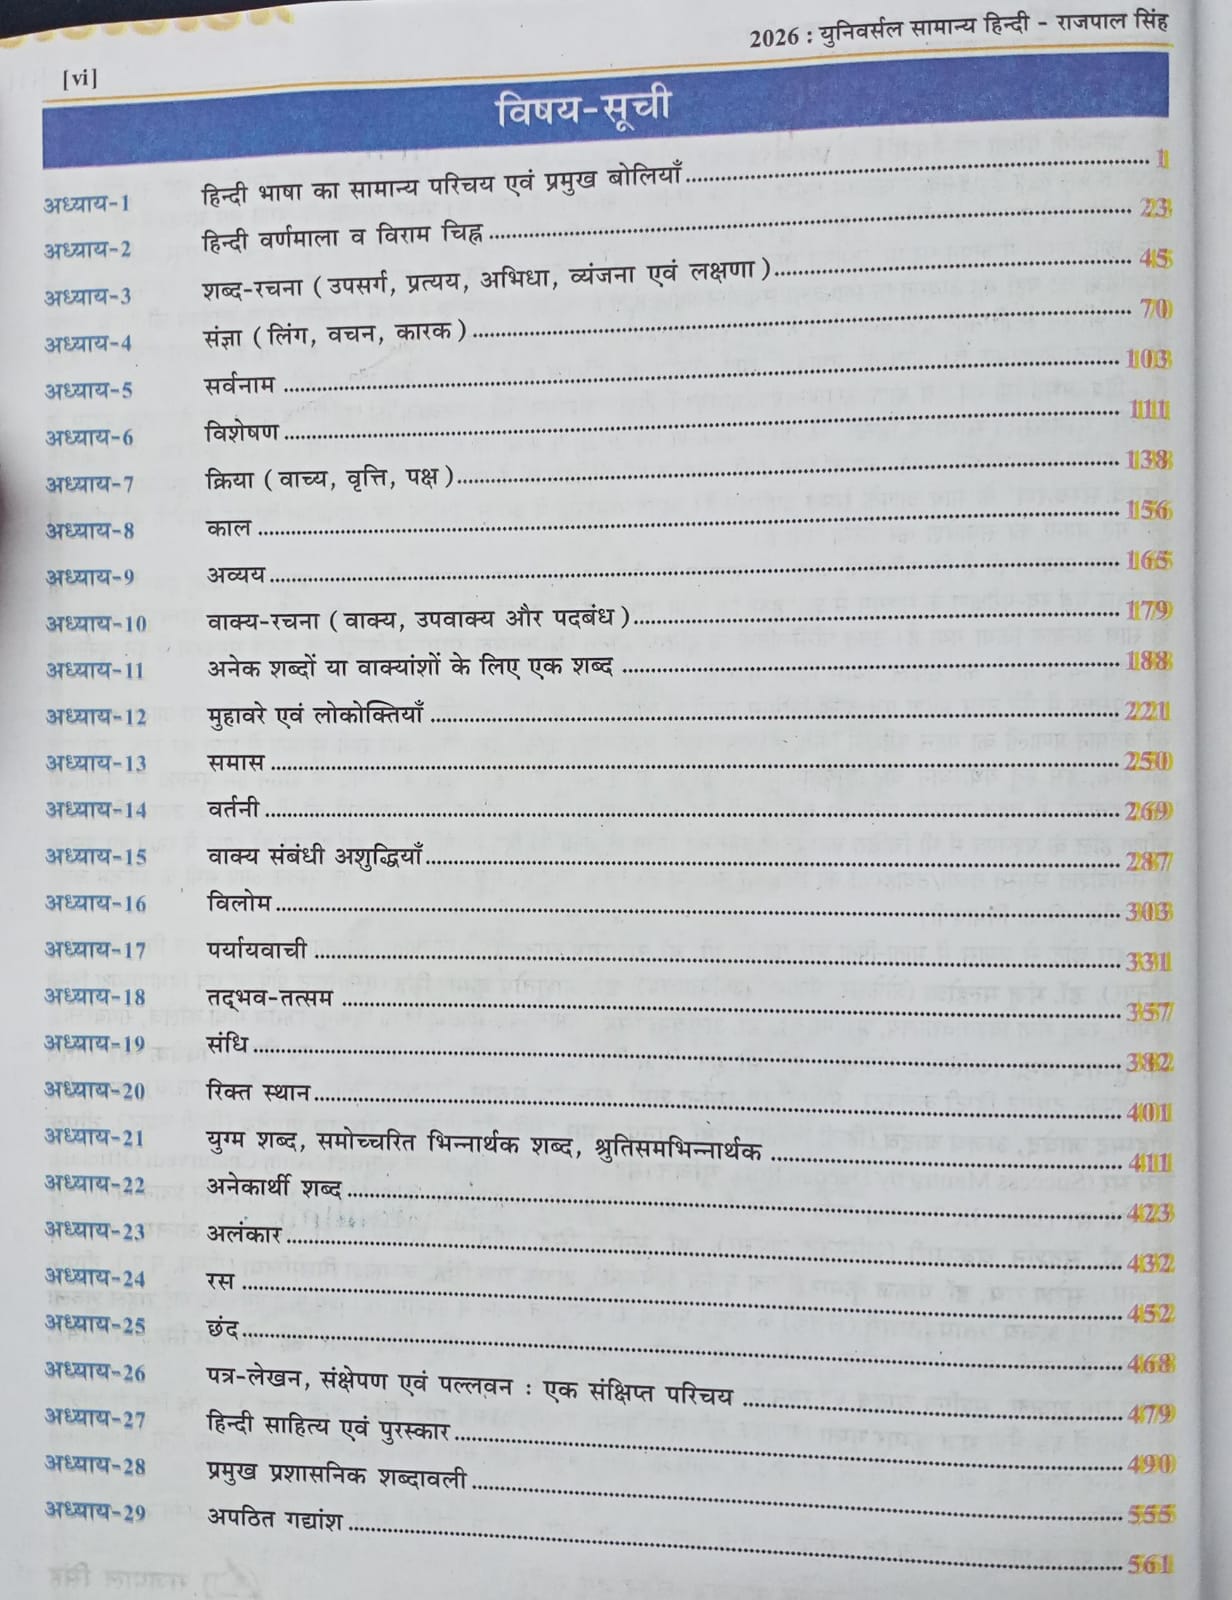 2026 : युनिवर्सल सामान्य हिन्दी - राजपाल सिंह
[vi]
विषय-सूची
अध्याय-1 हिन्दी भाषा का सामान्य परिचय एवं प्रमुख बोलियाँ 1
अध्याय-2 हिन्दी वर्णमाला व विराम चिह्न 23
अध्याय-3 शब्द-रचना (उपसर्ग, प्रत्यय, अभिधा, व्यंजना एवं लक्षणा) 45
अध्याय-4 संज्ञा (लिंग, वचन, कारक) 70
अध्याय-5 सर्वनाम 103
अध्याय-6 विशेषण 111
अध्याय-7 क्रिया (वाच्य, वृत्ति, पक्ष) 138
अध्याय-8 काल 156
अध्याय-9 अव्यय 165
अध्याय-10 वाक्य-रचना (वाक्य, उपवाक्य और पदबंध) 179
अध्याय-11 अनेक शब्दों या वाक्यांशों के लिए एक शब्द 188
अध्याय-12 मुहावरे एवं लोकोक्तियाँ 221
अध्याय-13 समास 250
अध्याय-14 वर्तनी 269
अध्याय-15 वाक्य संबंधी अशुद्धियाँ 287
अध्याय-16 विलोम 303
अध्याय-17 पर्यायवाची 331
अध्याय-18 तद्भव-तत्सम 357
अध्याय-19 संधि 382
अध्याय-20 रिक्त स्थान 401
अध्याय-21 युग्म शब्द, समोच्चरित भिन्नार्थक शब्द, श्रुतिसमभिन्नार्थक 411
अध्याय-22 अनेकार्थी शब्द 423
अध्याय-23 अलंकार 432
अध्याय-24 रस 452
अध्याय-25 छंद 468
अध्याय-26 पत्र-लेखन, संक्षेपण एवं पल्लवन : एक संक्षिप्त परिचय 479
अध्याय-27 हिन्दी साहित्य एवं पुरस्कार 490
अध्याय-28 प्रमुख प्रशासनिक शब्दावली 555
अध्याय-29 अपठित गद्यांश 561